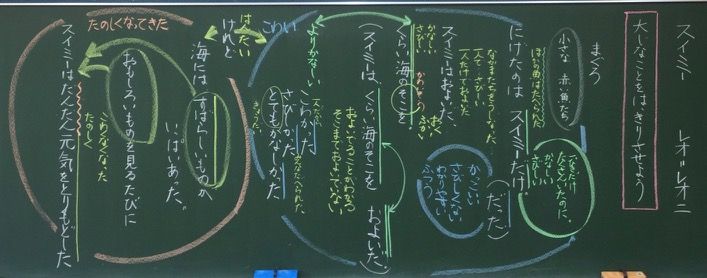 スイミー　レオ＝レオニ
大じなことをはっきりさせよう
まぐろ
小さな 赤い魚たち
ほかの魚はたべられた
にげたのは スイミーだけ
だった
かなしい
さびしい
スイミーはおよいだ、
なかまたちをうしなった
一人で さびしい
一人だけでおよいだ
かっこいい
さびしくない
わかりやすい
ふつう
かなしい
さびしい
くらい 海のそこを
おく
ふかい
よりかなしい
(スイミーは、くらい海のそこを およいだ。)
およいでることがわかる
そこまでおよいでいない
こわい
こわかった
さびしかった
とてもかなしかった
はんたい
けれど
海には、すばらしいものが
いっぱいあった。
おもしろいものを見るたびに
こわくなくなった
たのしく
スイミーはだんだん 元気をとりもどした
たのしくなってきた